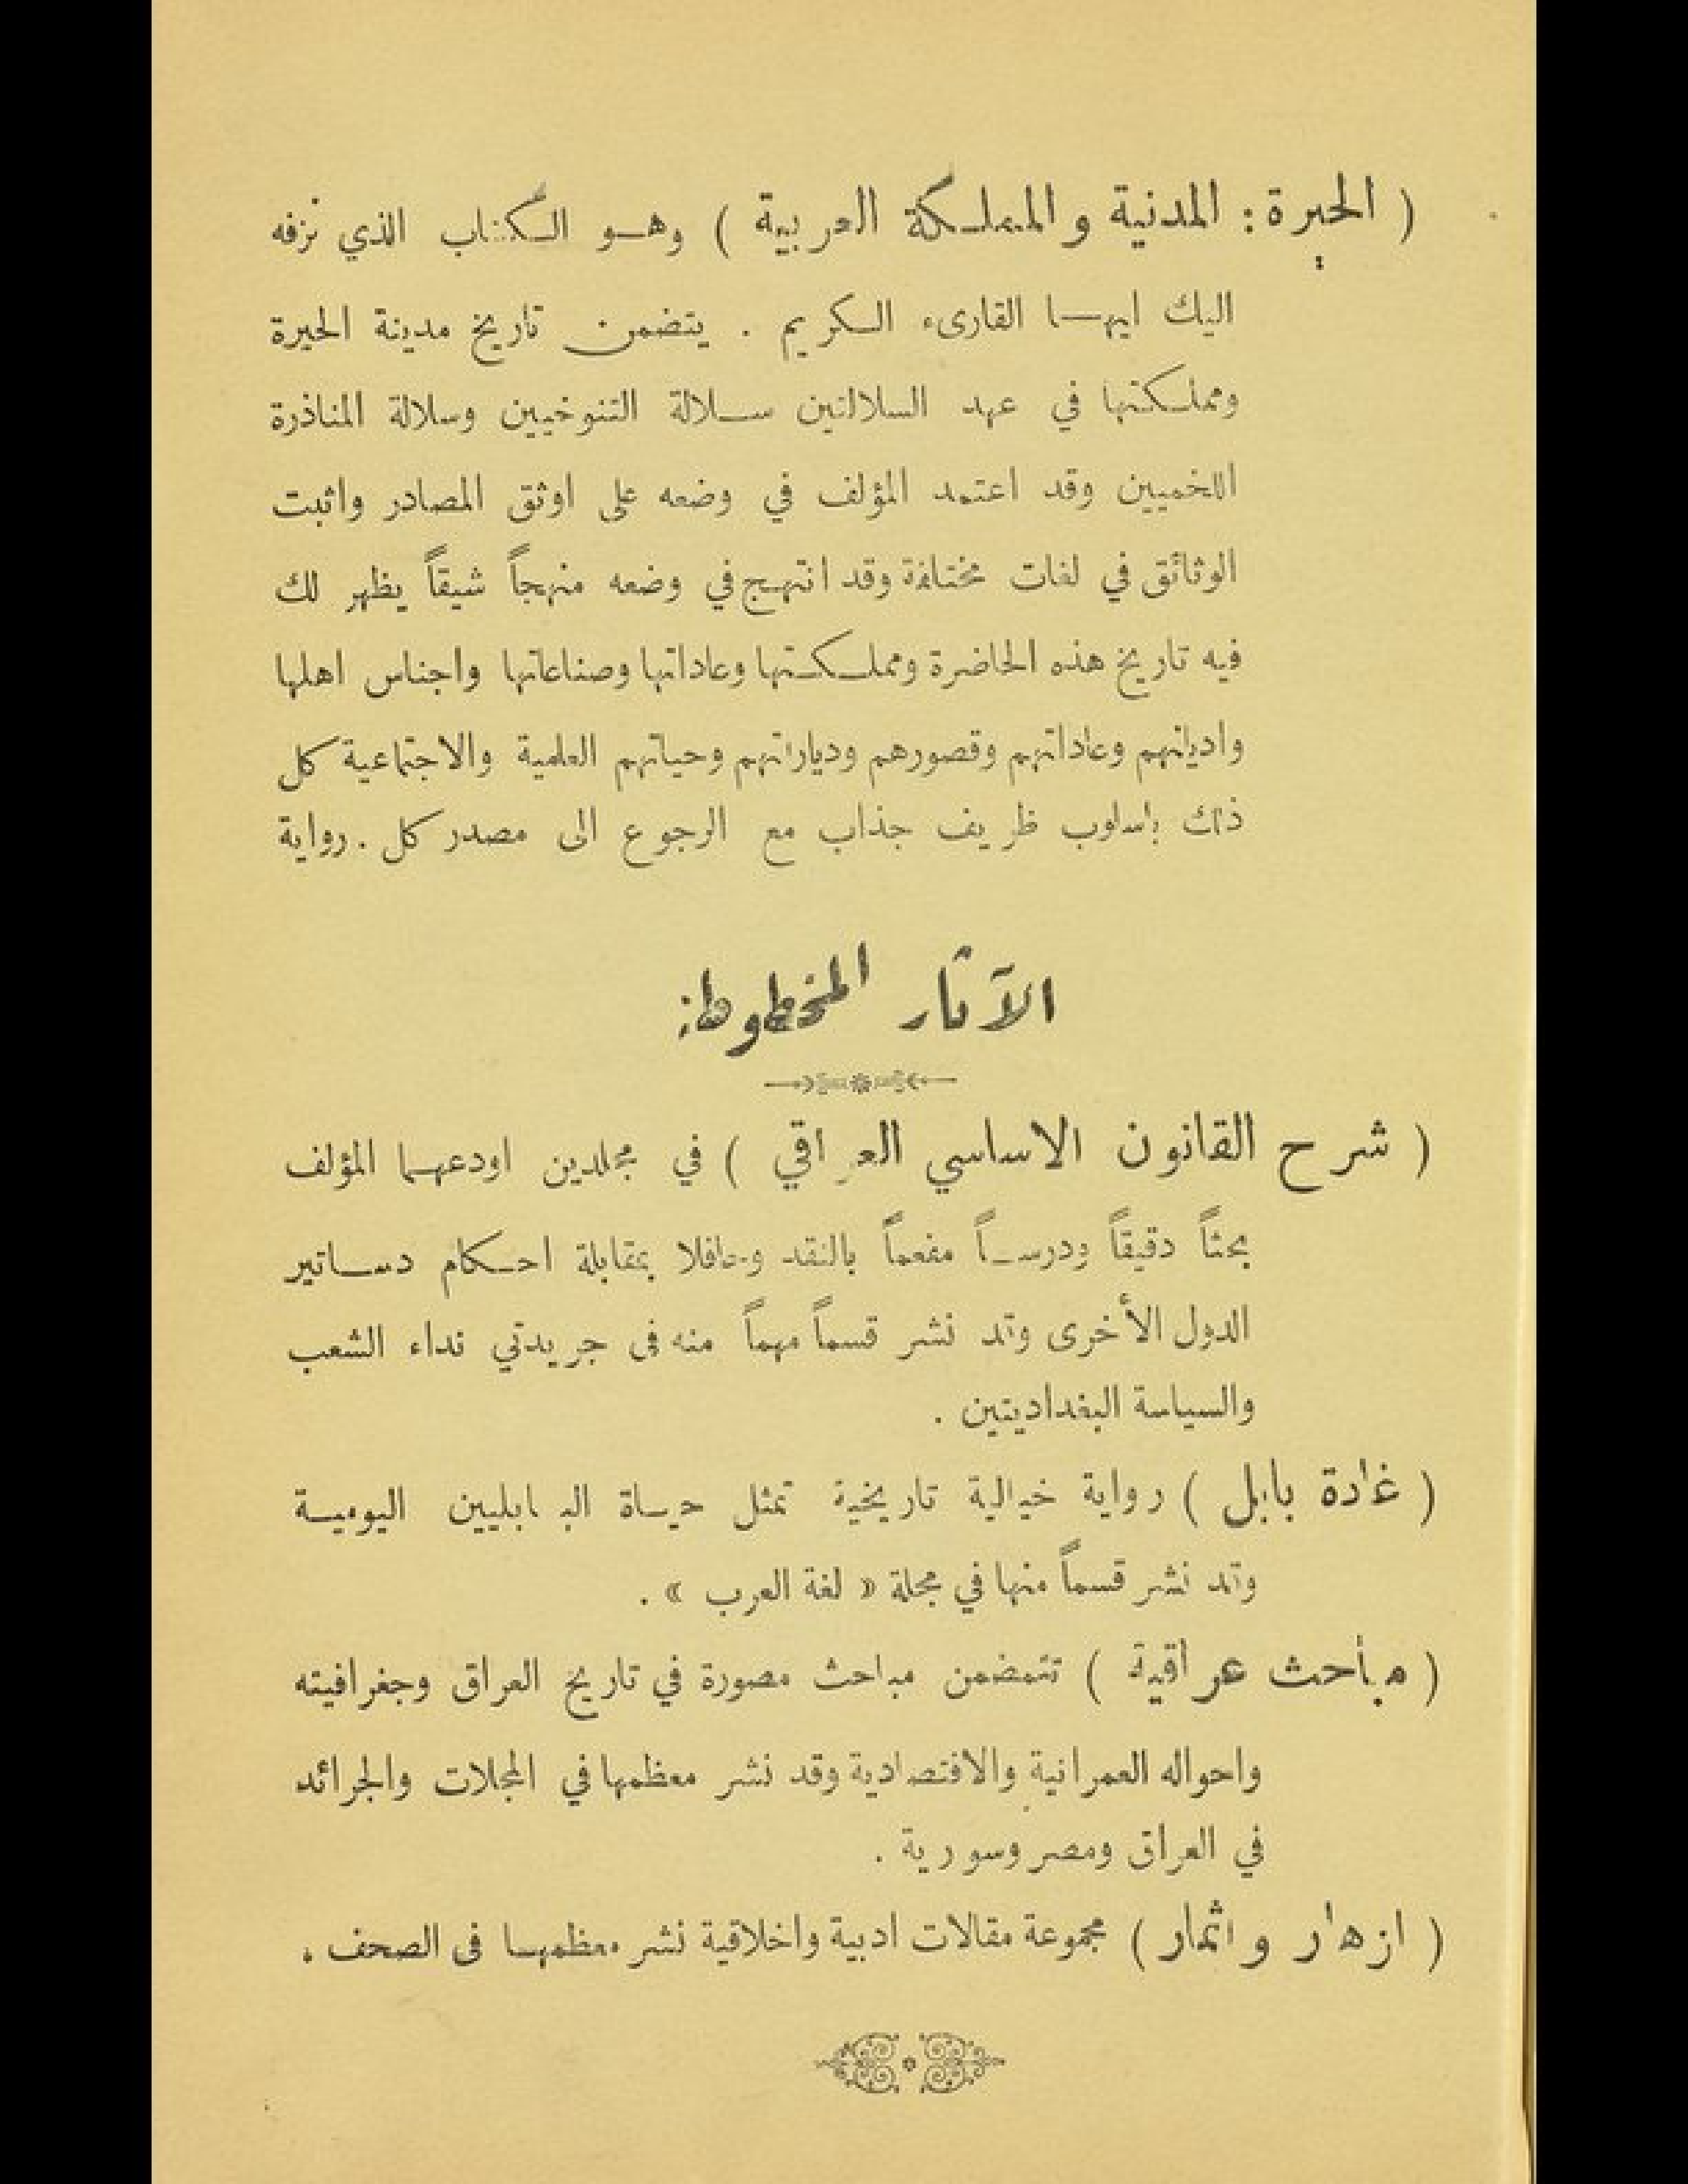 ( الحيرة : المدنية والمملكة العربية ) وهو الكتاب الذي نزفه
اليك ايها القارىء الكريم . يتضمن تاريخ مدينة الحيرة
ومملكتها في عهد السلالتين سلالة التنوخيين وسلالة المناذرة
اللخميين وقد اعتمد المؤلف في وضعه على اوثق المصادر واثبت
الوثائق في لغات مختلفة وقد انتهج في وضعه منهجاً شيقاً يظهر لك
فيه تاريخ هذه الحاضرة ومملكتها وعاداتها وصناعاتها واجناس اهلها
واديانهم وعاداتهم وقصورهم ودياراتهم وحياتهم العلمية والاجتماعية كل
ذلك باسلوب ظريف جذاب مع الرجوع الى مصدر كل . رواية
الآثار المخطوطة
( شرح القانون الاساسي العراقي ) في مجلدين اودعهما المؤلف
بحثاً دقيقاً ودرساً مفعماً بالنقد وحافلا بمقابلة احكام دساتير
الدول الأخرى وقد نشر قسماً مهماً منه فى جريدتي نداء الشعب
والسياسة البغداديتين .
( غادة بابل ) رواية خيالية تاريخية تمثل حياة البابليين اليومية
وقد نشر قسماً منها في مجلة « لغة العرب » .
( مباحث عراقية ) تتمضمن مباحث مصورة في تاريخ العراق وجغرافيته
واحواله العمرانية والاقتصادية وقد نشر معظمها في المجلات والجرائد
في العراق ومصر وسورية .
( ازهار واثمار ) مجموعة مقالات ادبية واخلاقية نشر معظمها فى الصحف .